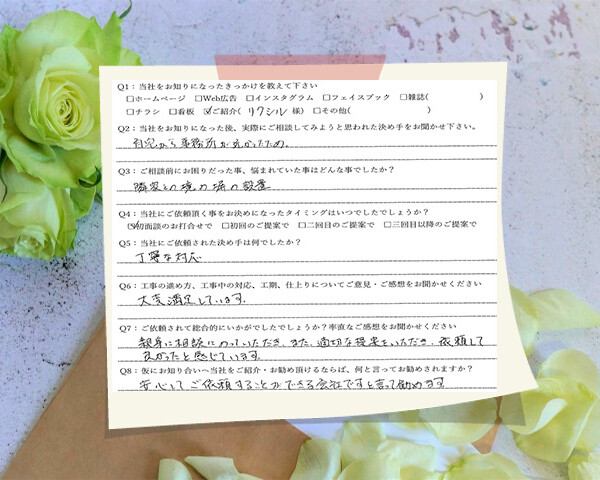 Q1：当社をお知りになったきっかけを教えて下さい
□ホームページ □Web広告 □インスタグラム □フェイスブック □雑誌( )
□チラシ □看板 ☑ご紹介( リクシル 様) □その他( )
Q2：当社をお知りになった後、実際にご相談してみようと思われた決め手をお聞かせ下さい。
自宅から事務所が近かったため。
Q3：ご相談前にお困りだった事、悩まれていた事はどんな事でしたか？
隣家との境の塀の設置
Q4：当社にご依頼頂く事をお決めになったタイミングはいつでしたでしょうか？
☑初面談のお打合せで □初回のご提案で □二回目のご提案で □三回目以降のご提案で
Q5：当社にご依頼された決め手は何でしたか？
丁寧な対応
Q6：工事の進め方、工事中の対応、工期、仕上りについてご意見・ご感想をお聞かせください
大変満足しています。
Q7：ご依頼されて総合的にいかがでしたでしょうか？率直なご感想をお聞かせください
親身に相談にのっていただき、また、適切な提案をいただき、依頼して
良かったと感じています。
Q8：仮にお知り合いへ当社をご紹介・お勧め頂けるならば、何と言ってお勧めされますか？
安心してご依頼することができる会社ですと言って勧めます